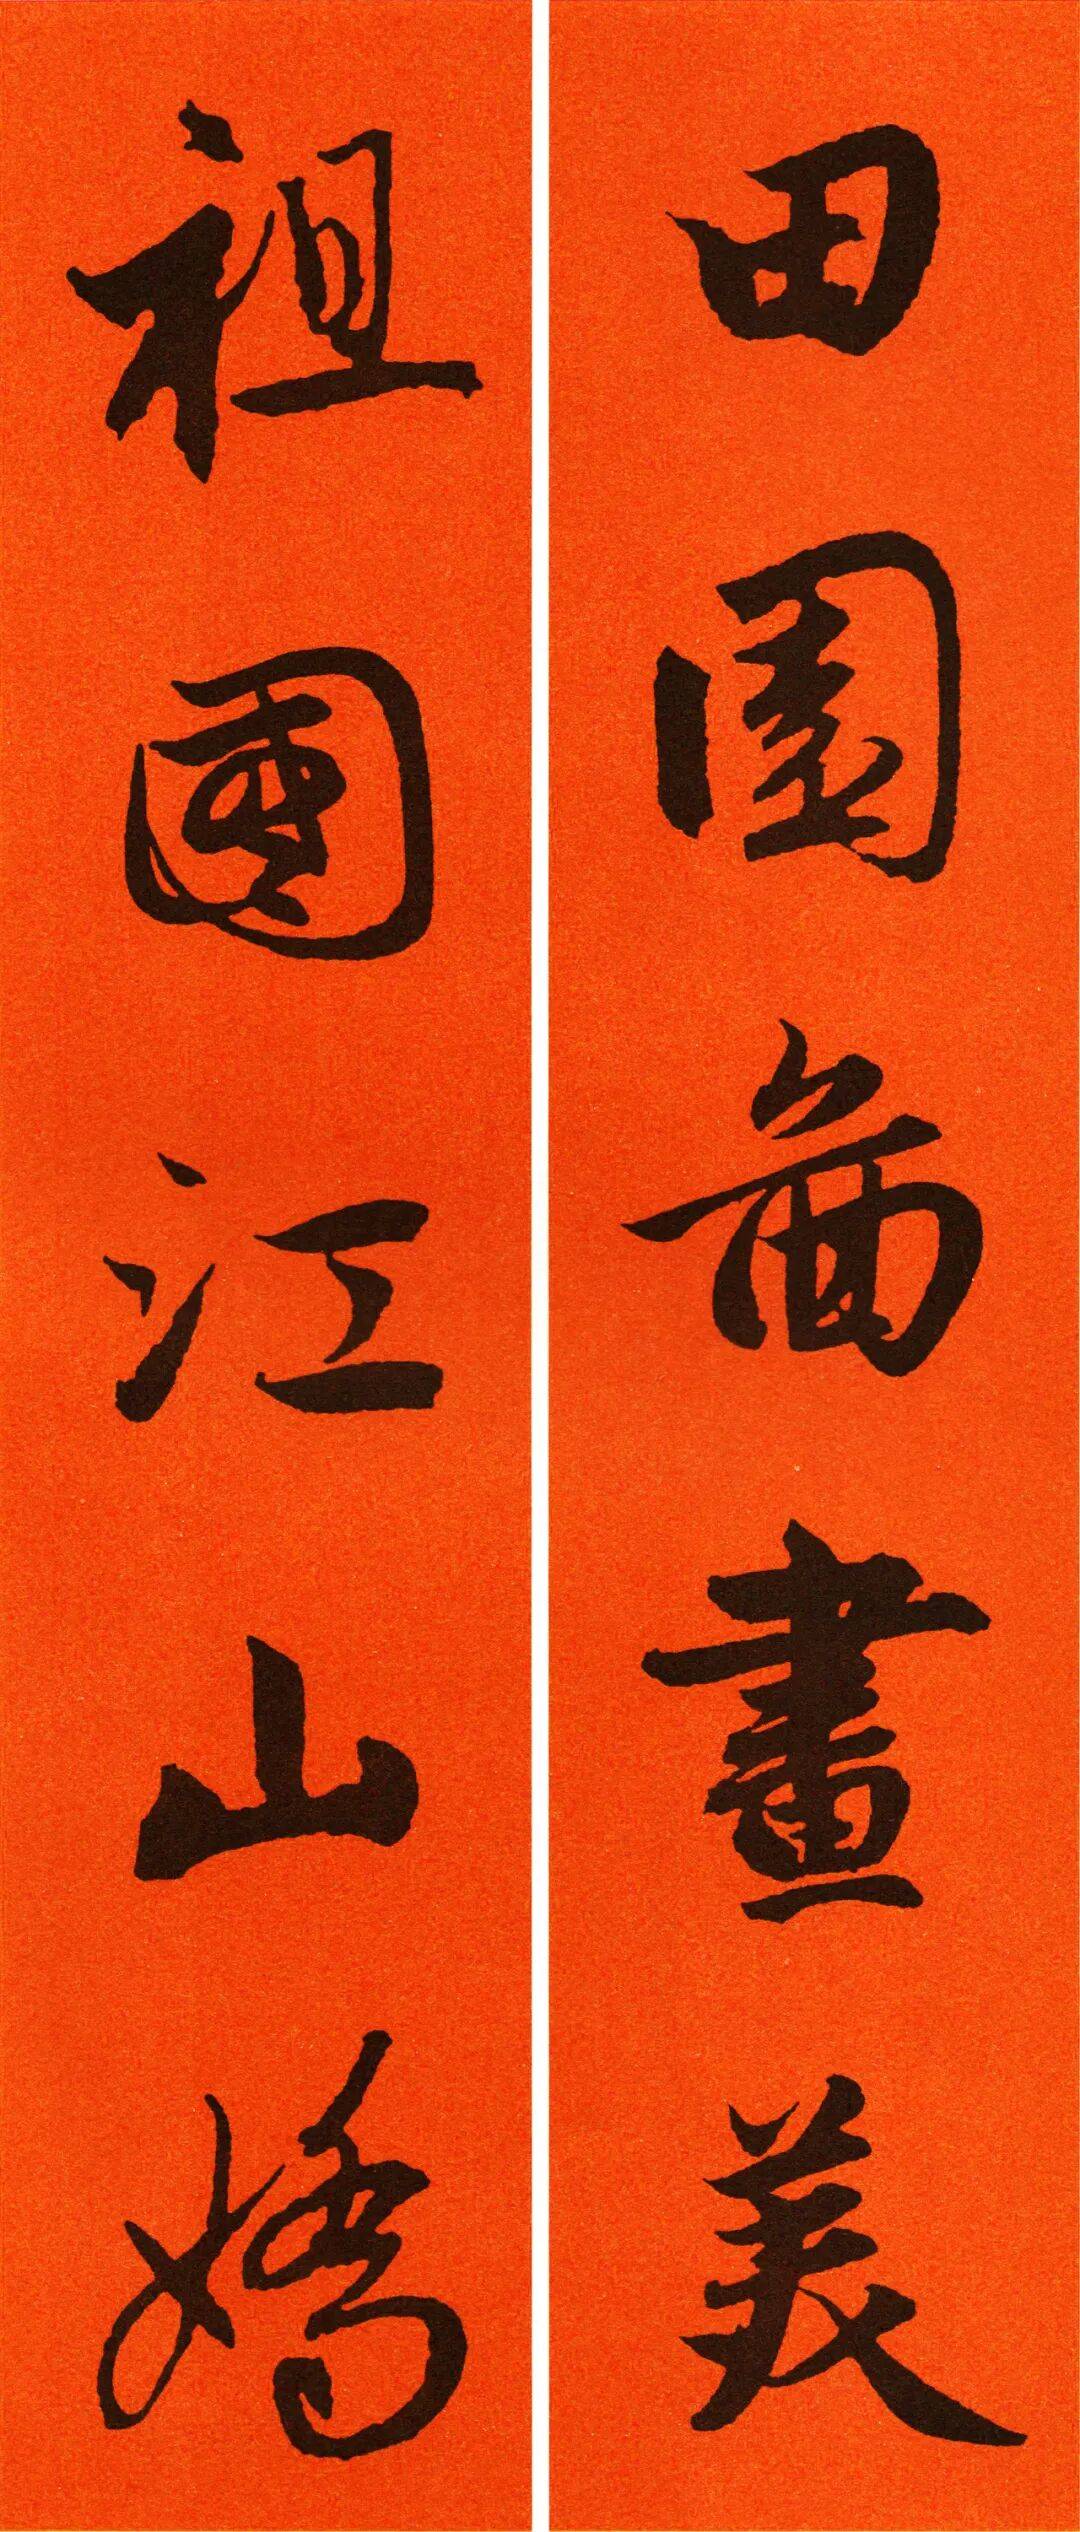 田園圖畫美
祖國江山嬌